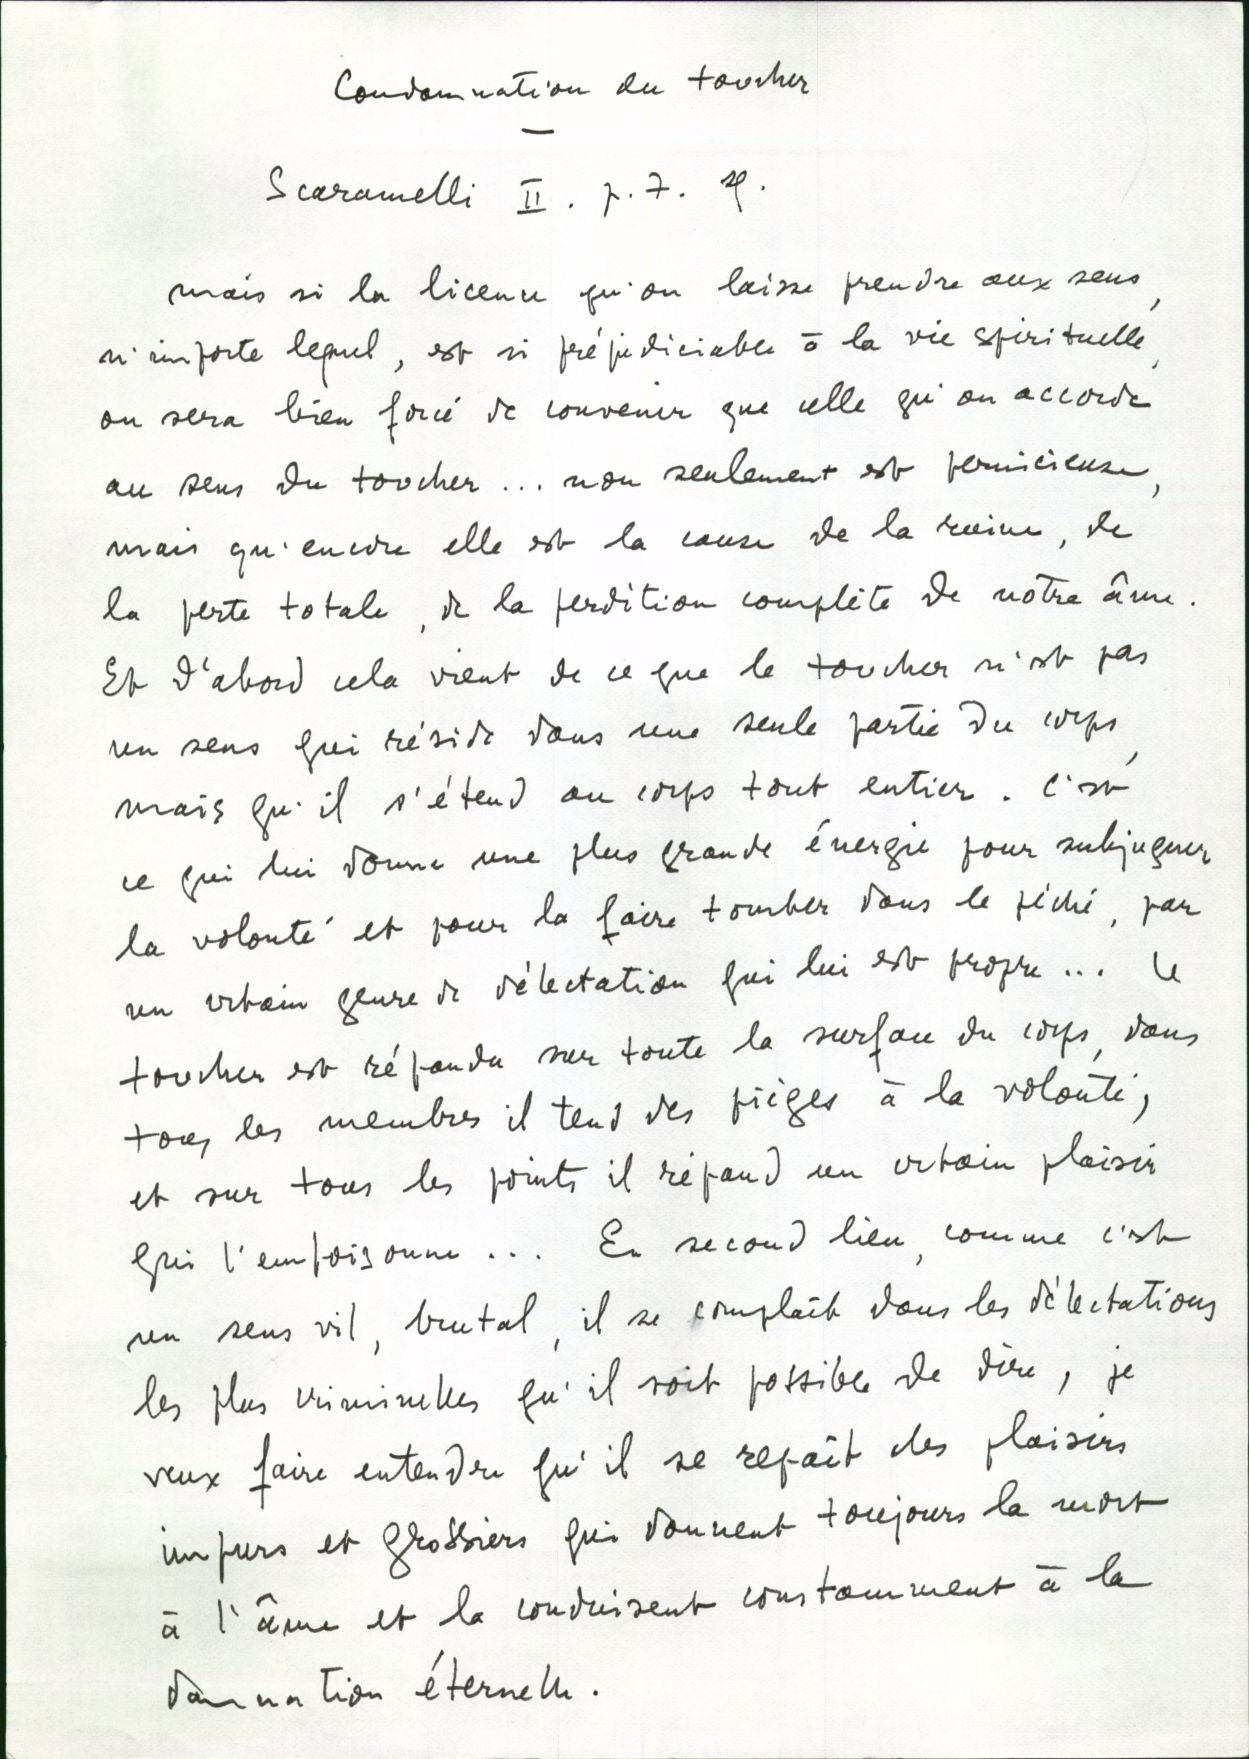 Condamnation du toucher
—
Scaramelli II. p. 7. sq.
mais si la licence qu'on laisse prendre aux sens,
n'importe lequel, est si préjudiciable à la vie spirituelle,
on sera bien forcé de convenir que celle qu'on accorde
au sens du toucher ... non seulement est pernicieuse,
mais qu'encore elle est la cause de la ruine, de
la perte totale, de la perdition complète de notre âme.
Et d'abord cela vient de ce que le toucher n'est pas
un sens qui réside dans une seule partie du corps,
mais qu'il s'étend au corps tout entier. C'est
ce qui lui donne une plus grande énergie pour subjuguer
la volonté et pour la faire tomber dans le péché, par
un certain genre de délectation qui lui est propre ... Le
toucher est répandu sur toute la surface du corps, dans
tous les membres il tend des pièges à la volonté,
et sur tous les points il répand un certain plaisir
qui l'empoisonne ... En second lieu, comme c'est
un sens vil, brutal, il se complaît dans les délectations
les plus criminelles qu'il soit possible de dire, je
veux faire entendre qu'il se repaît des plaisirs
impurs et grossiers qui donnent toujours la mort
à l'âme et la conduisent constamment à la
damnation éternelle.